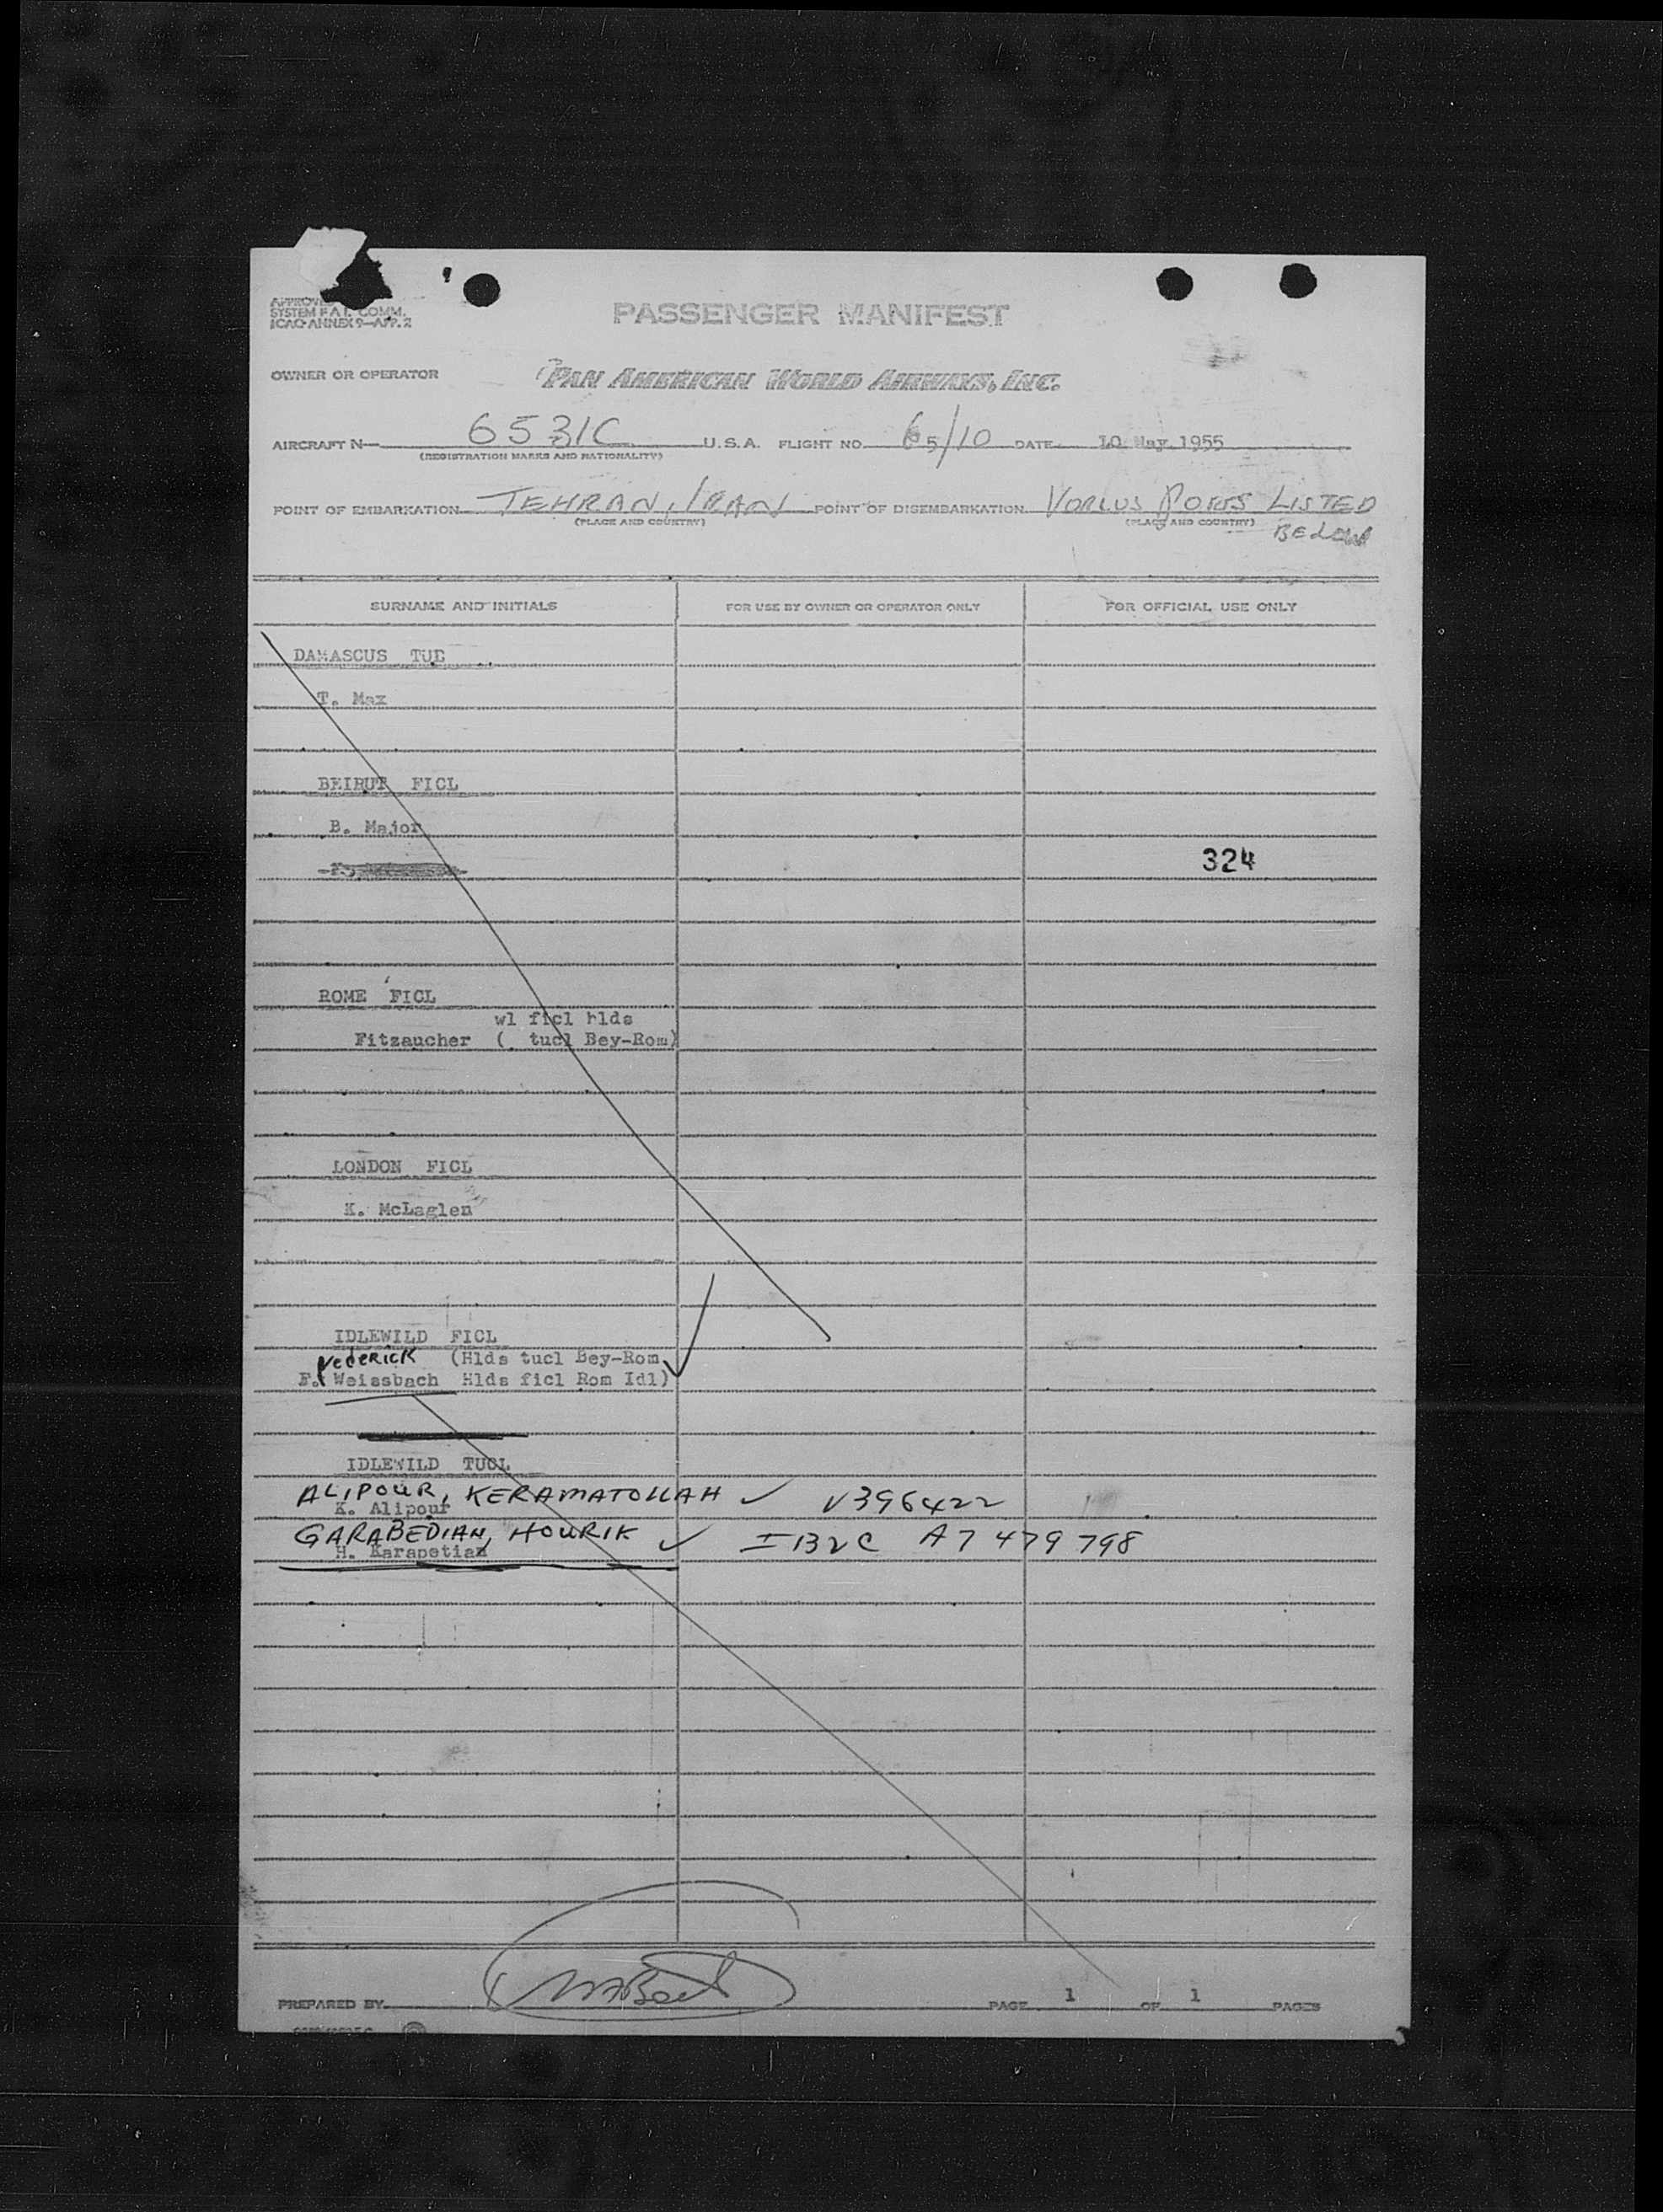 SYSTEM F A L COMM.
ICAO ANNEX 9—APP. 2
PASSENGER MANIFEST
OWNER OR OPERATOR PAN AMERICAN WORLD AIRWAYS, INC.
AIRCRAFT N— 6531C U.S.A. FLIGHT NO 65/10 DATE 10 May 1955
(REGISTRATION MARKS AND NATIONALITY)
POINT OF EMBARKATION TEHRAN, IRAN POINT OF DISEMBARKATION PORTS LISTED
(PLACE AND COUNTRY) (PLACE AND COUNTRY) BELOW
SURNAME AND INITIALS FOR USE BY OWNER OR OPERATOR ONLY FOR OFFICIAL USE ONLY
DAMASCUS
T. Max
BEIRUT FICL
B. Major
324
ROME FICL
wl ficl hlds
Fitzaucher ( tucl Bey-Rom)
LONDON FICL
K. McLaglen
IDLEWILD FICL
rederick (Hlds tucl Bey-Rom
F. Weissbach Hlds ficl Rom Idl)
IDLEWILD TUCL
ALIPOUR, KERAMATOLLAH ✓ V396422
K. Alipour
GARABEDIAN, HOURIK ✓ I-132C A7 479 798
H. Karapetian
PREPARED BY PAGE 1 OF 1 PAGES